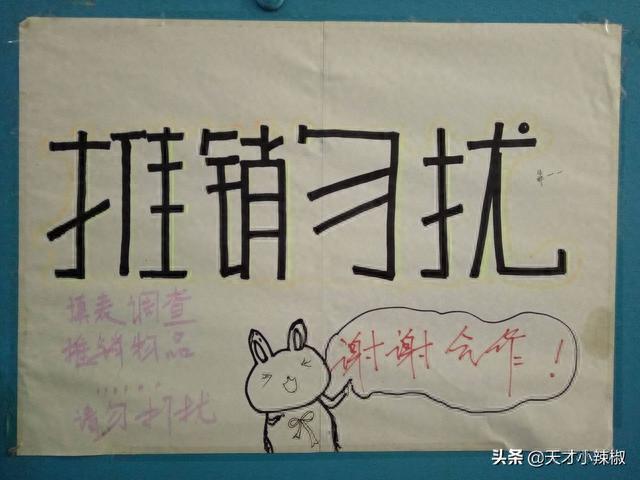 推销勿扰
填表调查
推销物品
......
请勿打扰
谢谢合作！
头条 @天才小辣椒